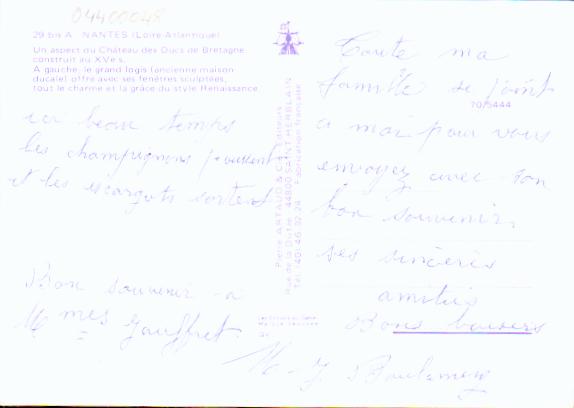 04400048
29 bis A NANTES (Loire-Atlantique)
Un aspect du Château des Ducs de Bretagne,
construit au XVe s.
A gauche, le grand logis (ancienne maison
ducale) offre avec ses fenêtres sculptées,
tout le charme et la grâce du style Renaissance.
ici beau temps
les champignons poussent
et les escargots sortent
Bon souvenir à
M mes Gauffret
Pierre ARTAUD & Cie, Editeurs
Rue de la Dutée 44800 SAINT-HERBLAIN
Tél. (40) 46.32.24 Fabrication française
70/5444
Toute ma
famille se joint
a moi pour vous
envoyez avec son
bon souvenir,
ses sincères
amitiés
Bons baisers
M J